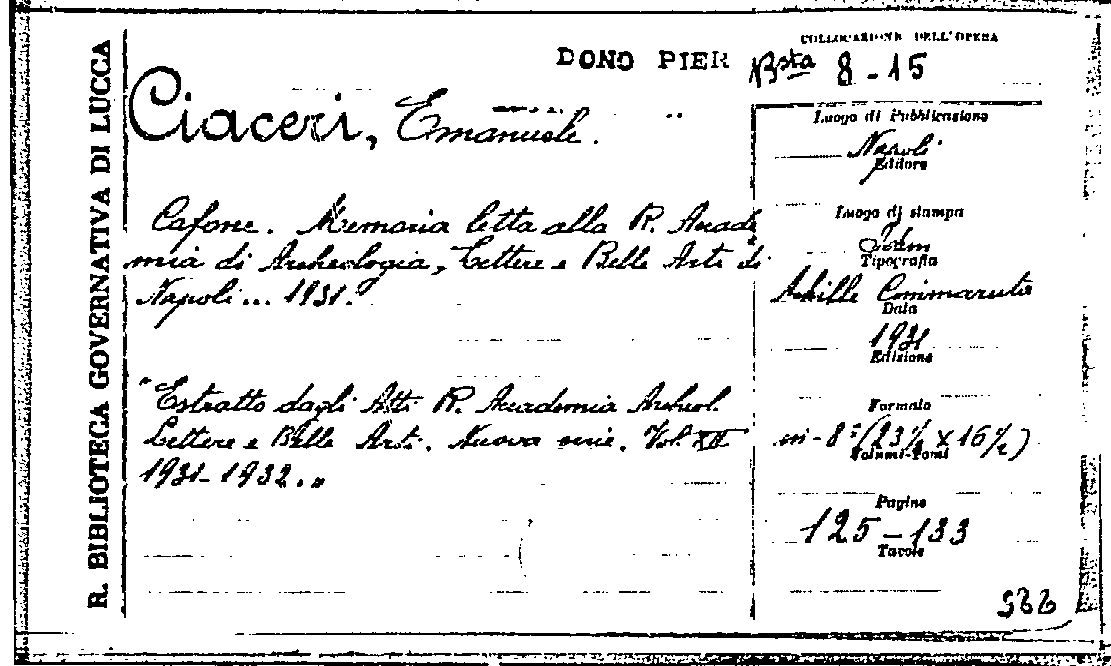 R. BIBLIOTECA GOVERNATIVA DI LUCCA
DONO PIER
COLLOCAZIONE DELL'OPERA
Bsta 8-15
Ciaceri, Emanuele.
Cafone. Memoria letta alla R. Accade
mia di Archeologia, Lettere e Belle Arti di
Napoli... 1931.
"Estratto dagli Atti R. Accademia Archeol.
Lettere e Belle Arti. Nuova serie. Vol. XII
1931-1932."
Luogo di Pubblicazione
Napoli
Editore
Luogo di stampa
Idem
Tipografia
Achille Cimmaruta
Data
1931
Edizione
Formato
in-8° (23½ x 16½)
Volumi-Tomi
Pagine
125-133
Tavole